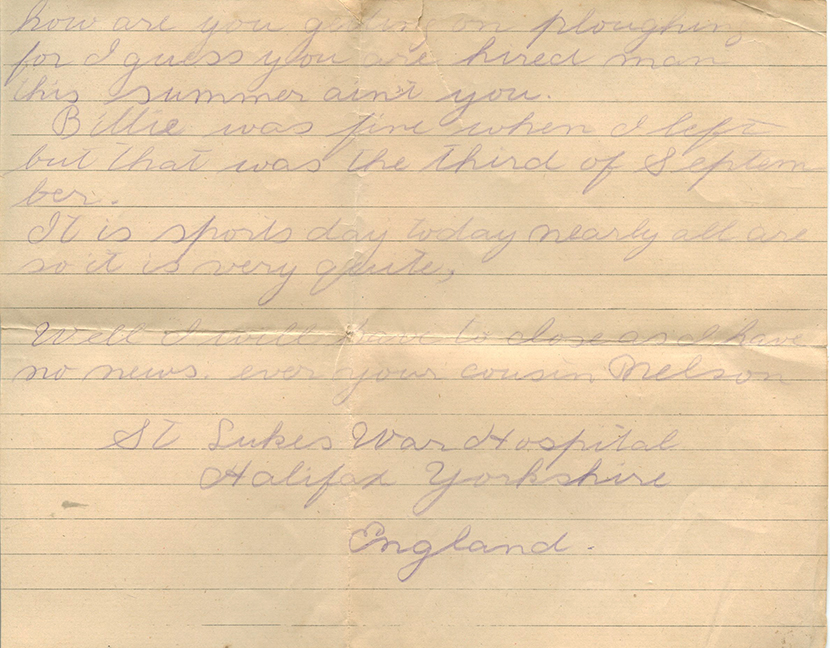 how are you getting on ploughing
for I guess you are hired man
this summer ain't you.
Billie was fine when I left
but that was the third of Septem
ber.
It is sports day today nearly all are
so it is very quite,
Well I will have to close as I have
no news. ever your cousin Nelson
St Lukes War Hospital
Halifax Yorkshire
England.